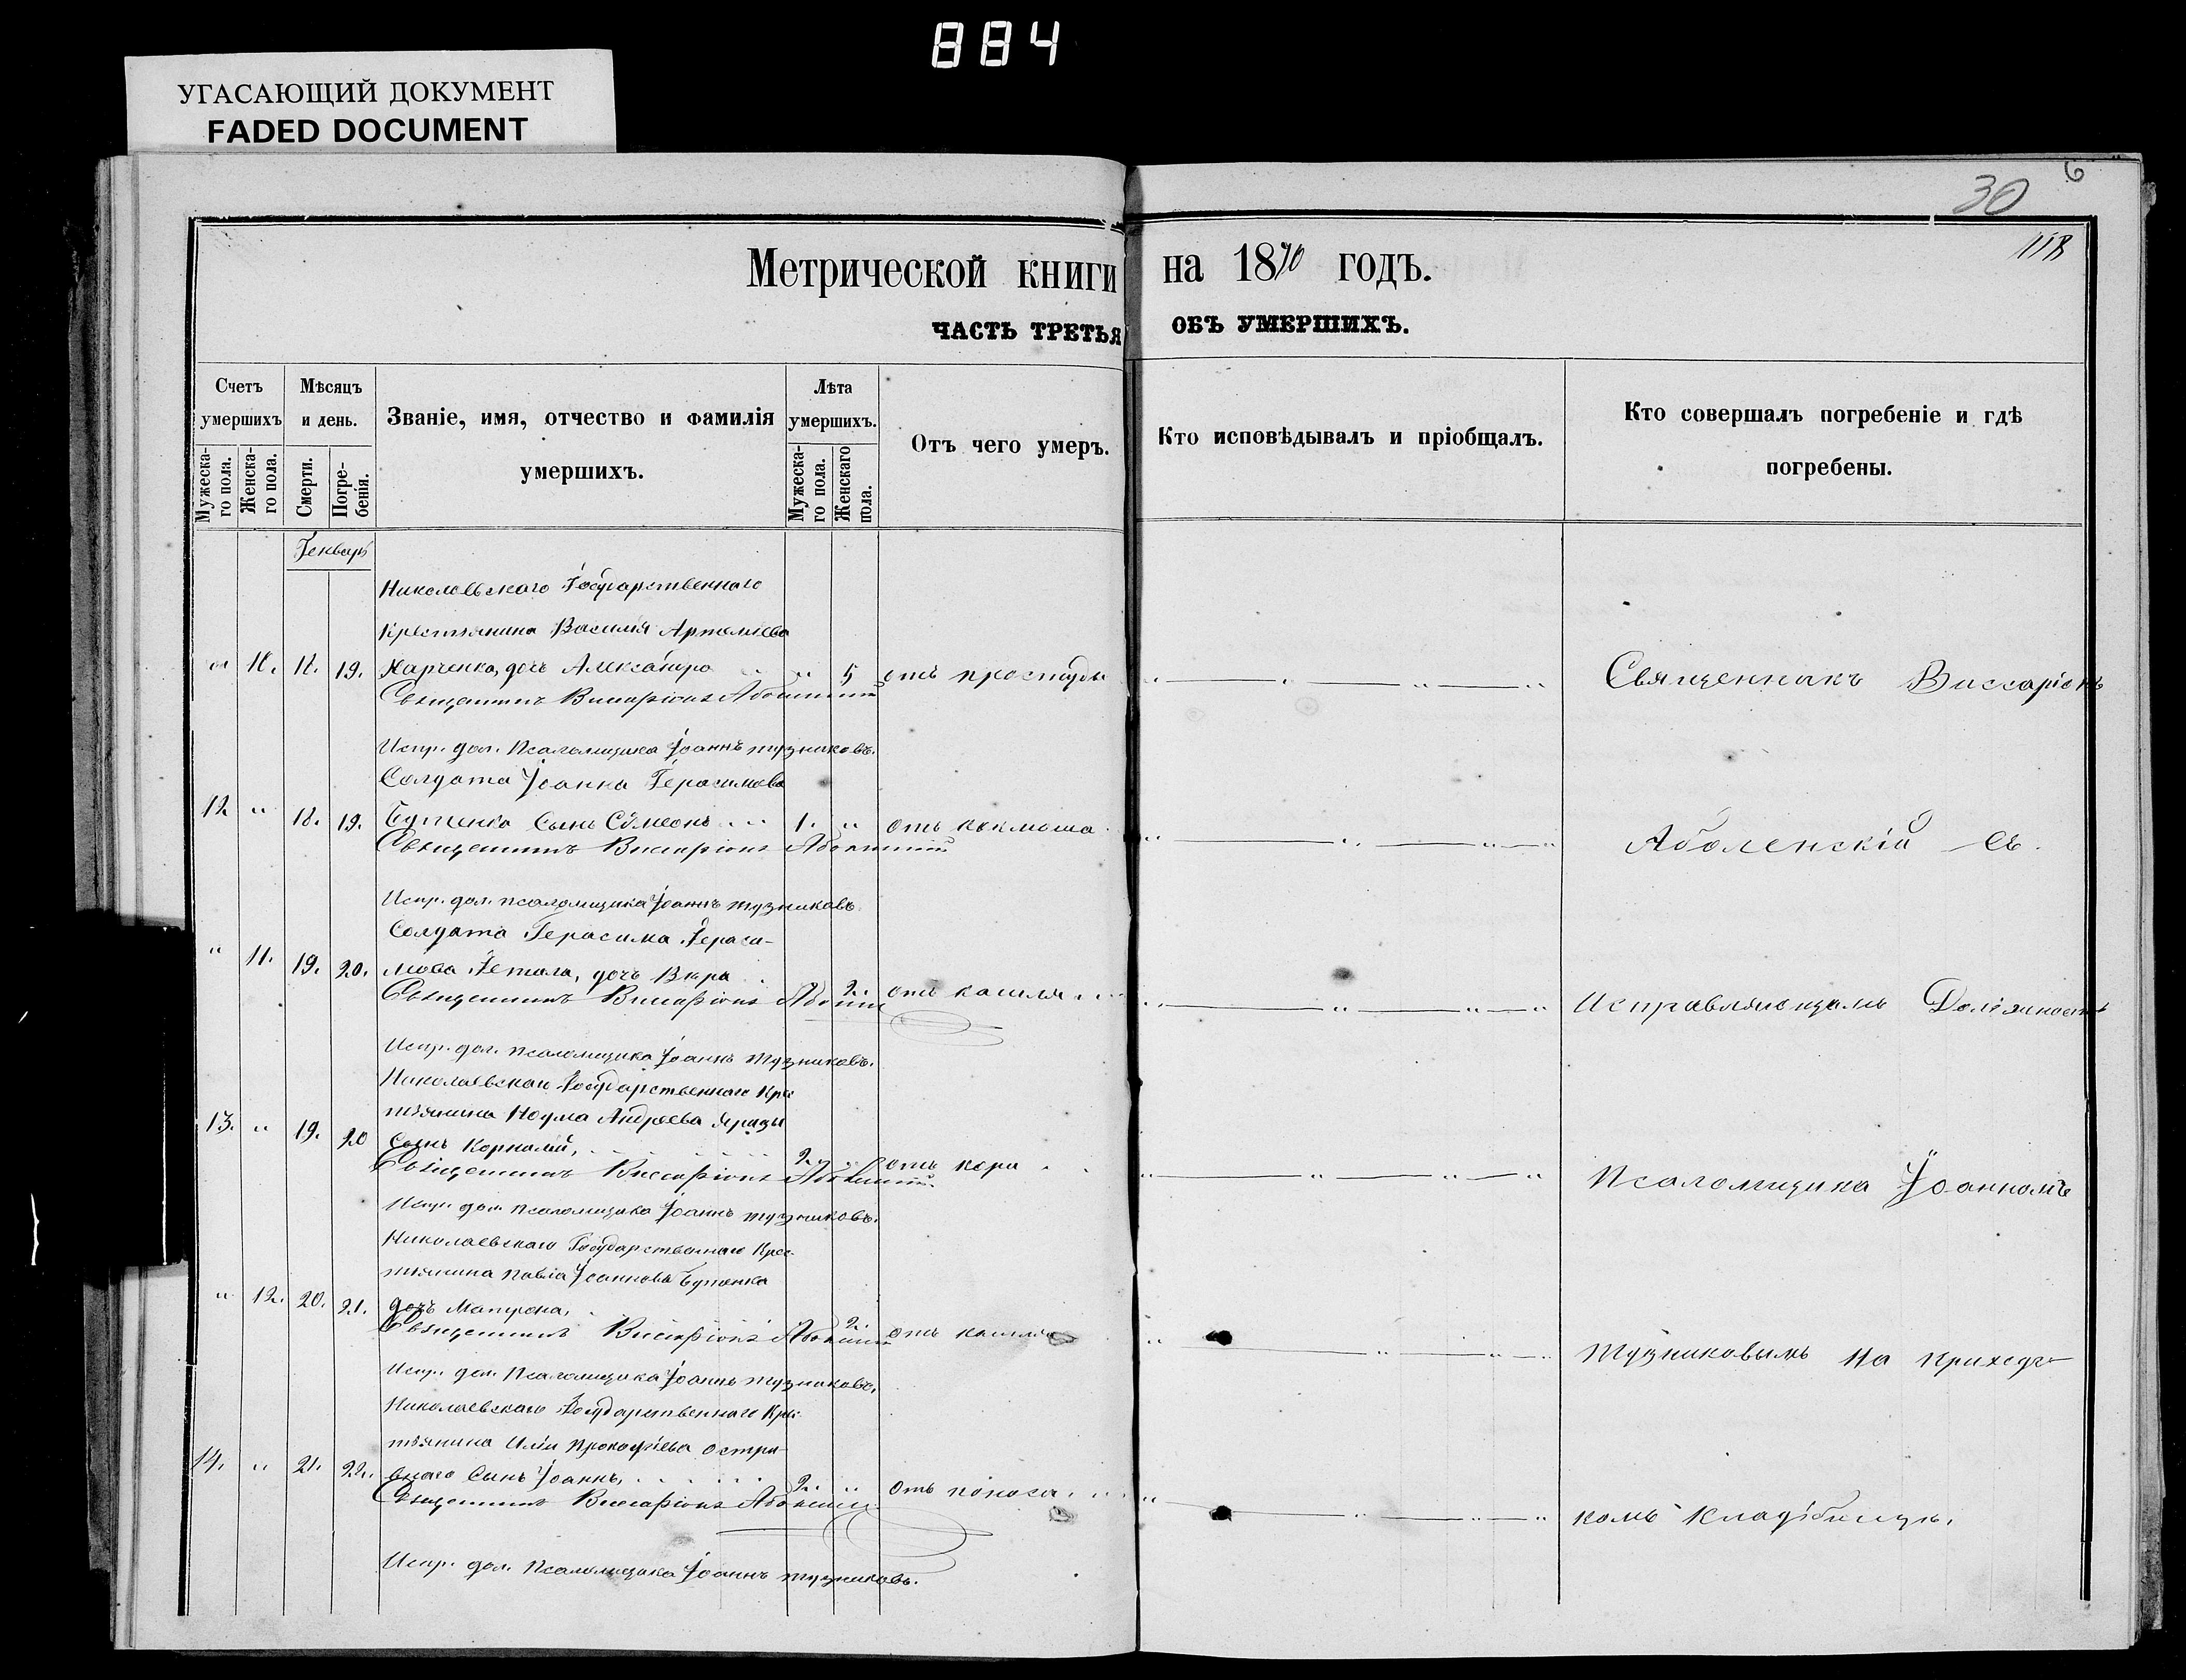 884
УГАСАЮЩИЙ ДОКУМЕНТ
FADED DOCUMENT
30
6
118
Метрической книги на 1870 годъ.
ЧАСТЬ ТРЕТЬЯ ОБЪ УМЕРШИХЪ.
Счетъ умершихъ
Мѣсяцъ и день.
Званіе, имя, отчество и фамилія умершихъ.
Лѣта умершихъ.
Отъ чего умеръ.
Кто исповѣдывалъ и пріобщалъ.
Кто совершалъ погребеніе и гдѣ погребены.
Мужеска-го пола.
Женска-го пола.
Смерти.
Погре-бенія.
Мужеска-го пола.
Женскаго пола.
Генварь
Николовского Государственнаго
Крестьянина Василия Артемиева
" 10. 18. 19. Харченка, дочь Александра " 5 отъ простуды " " " " Священникъ Виссаріонъ
Священникъ Виссаріонъ Аболенскій
Испр. дол. Псаломщика Іоаннъ Тузниковъ.
Солдата Іоанна Герасимова
12 " 18. 19. Бутенка Сынъ Сѵмеонъ 1. " отъ коклюша " " " " Аболенскій съ
Священникъ Виссаріонъ Аболенскій
Испр. дол. псаломщика Іоаннъ Тузниковъ
Солдата Герасима Гераси-
" 11. 19. 20. мова дочь Вера 2. отъ кашля " " " " Исправляющимъ Должность
Священникъ Виссаріонъ Аболенскій
Испр. дол. псаломщика Іоаннъ Тузниковъ.
Николаевскаго Государственнаго Крес
тьянина Наума Андреева
13. " 19. 20 Сынъ Корнилій, 2. " отъ кори " " " " Псаломщика Іоанномъ
Священникъ Виссаріонъ Аболенскій
Испр. дол. псаломщика Іоаннъ Тузниковъ.
Николаевскаго Государственнаго Крес-
тьянина Павла Іоаннова Бутенка
" 12. 20. 21. дочь Матрона, 2. отъ кашля " " " Тузниковымъ на приходс-
Священникъ Виссаріонъ Аболенскій
Испр. дол. Псаломщика Іоаннъ Тузниковъ.
Николаевскаго Государственнаго Крес-
тьянина Иліи Прокофіева Остри-
14. " 21. 22. внаго Сынъ Іоаннъ, 2. " отъ поноса " " " " комъ кладбищѣ.
Священникъ Виссаріонъ Аболенскій
Испр. дол. Псаломщика Іоаннъ Тузниковъ.